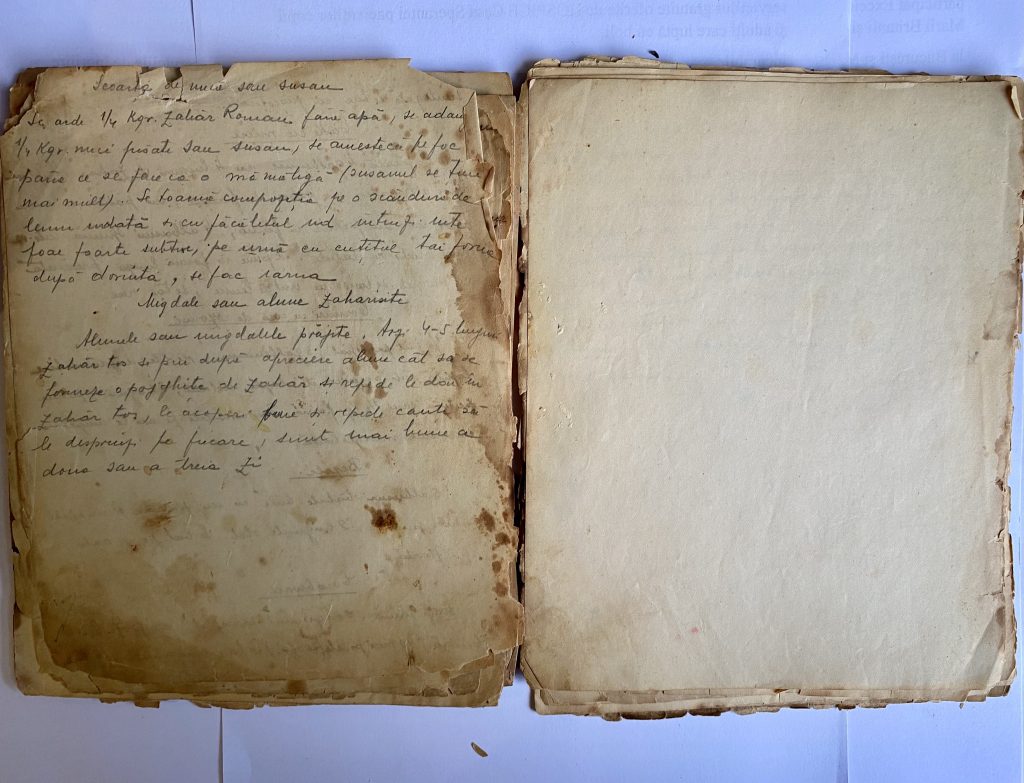 Scoarță de nuci sau susan
Se arde 1/4 Kgr. Zahăr Roman fără apă, se adau
1/4 Kgr. nuci pisate sau susan, se amestecă pe foc
până ce se face ca o mămăligă (susanul se ține
mai mult). Se toarnă compoziția pe o scândură de
lemn udată și cu făcălețul ud întinzi
foae foarte subțire, pe urmă cu cuțitul tai forme
după dorință, se fac iarna
Migdale sau alune Zaharisite
Alunele sau migdalele prăjite. Arzi 4-5 linguri
zahăr tos și pui după apreciere alune cât să se
formeze o pojghiță de zahăr și repede le dai în
zahăr tos, le acoperi bine și repede cauți să
le desprinzi pe fiecare, sunt mai bune a
doua sau a treia zi